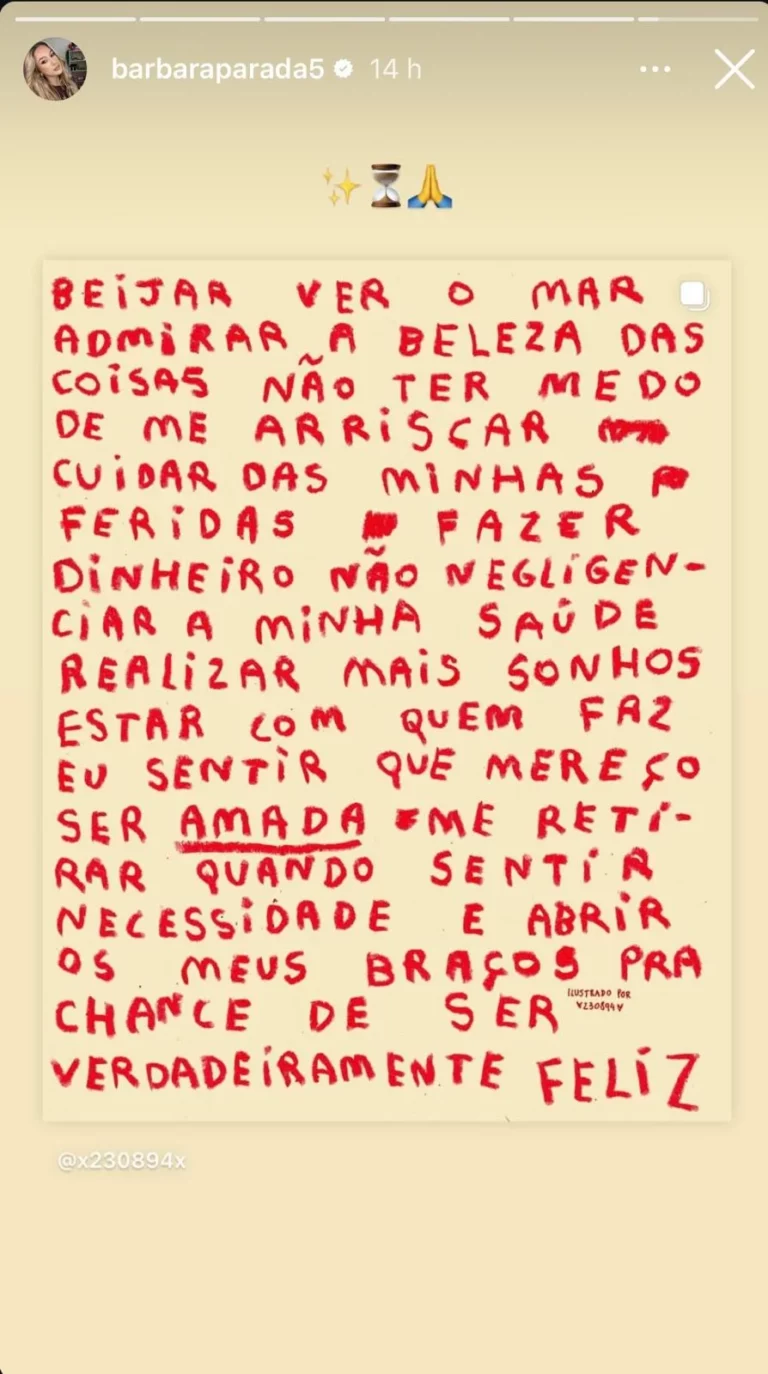 barbaraparada5 14 h
✨⏳🙏
BEIJAR VER O MAR
ADMIRAR A BELEZA DAS
COISAS NÃO TER MEDO
DE ME ARRISCAR
CUIDAR DAS MINHAS
FERIDAS FAZER
DINHEIRO NÃO NEGLIGEN-
CIAR A MINHA SAÚDE
REALIZAR MAIS SONHOS
ESTAR COM QUEM FAZ
EU SENTIR QUE MEREÇO
SER AMADA ME RETI-
RAR QUANDO SENTIR
NECESSIDADE E ABRIR
OS MEUS BRAÇOS PRA
CHANCE DE SER
ILUSTRADO POR
X230894X
VERDADEIRAMENTE FELIZ
@x230894x